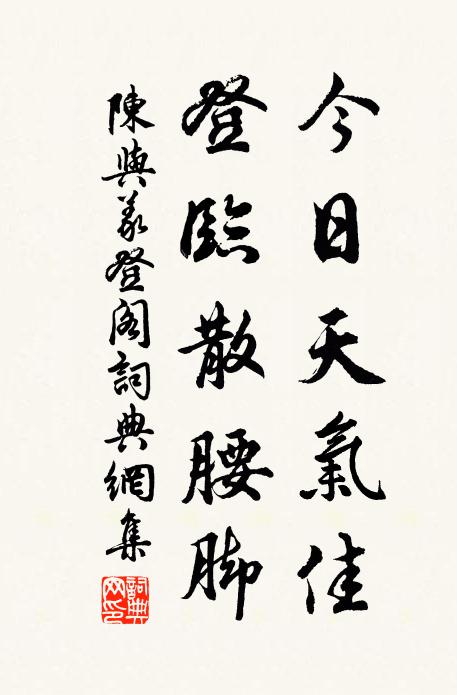 今日天氣佳
登臨散腰脚
陳與義登閣詞典網集
詞典網印